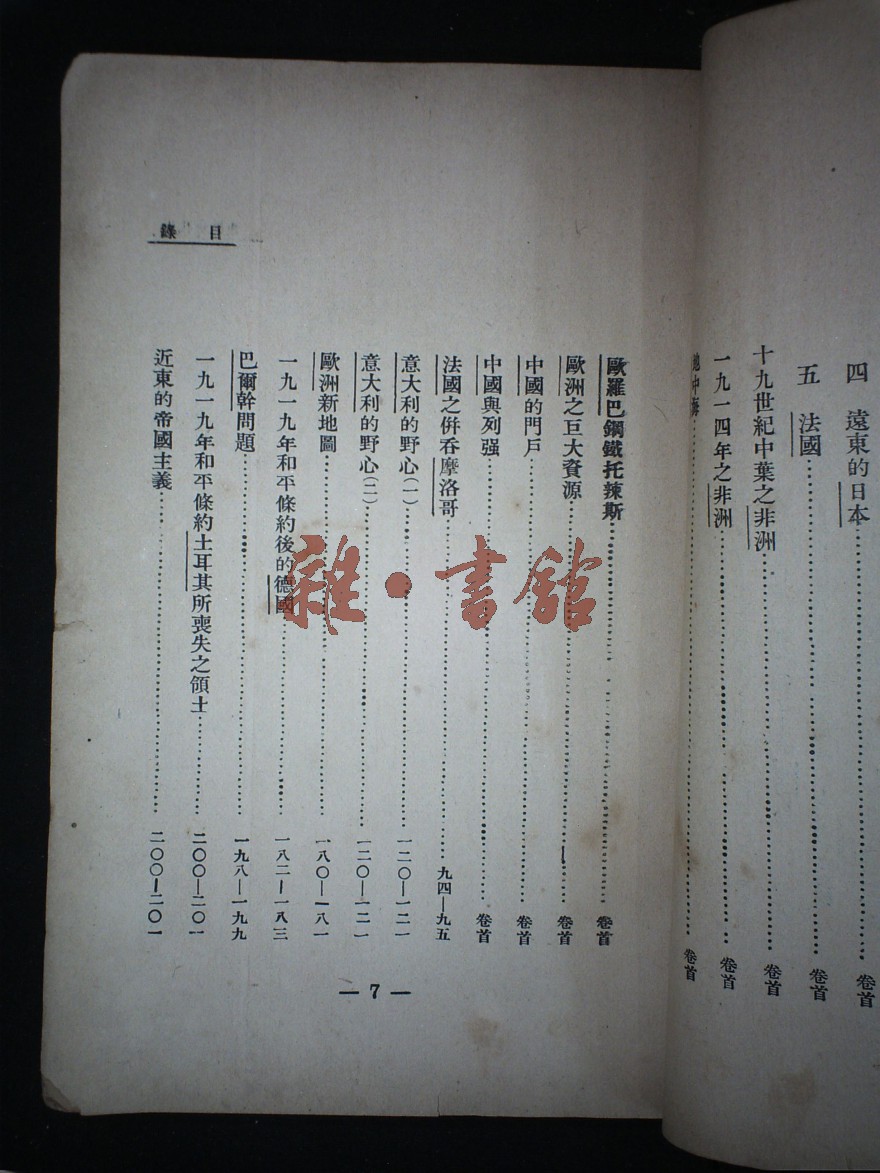 四　遠東的日本……卷首
五　法國……卷首
十九世紀中葉之非洲……卷首
一九一四年之非洲……卷首
地中海……卷首
目錄
歐羅巴鋼鐵托辣斯……卷首
歐洲之巨大資源……卷首
中國的門戶……卷首
中國與列强……卷首
法國之併吞摩洛哥……九四—九五
意大利的野心(一)……一二〇—一二一
意大利的野心(二)……一二〇—一二一
歐洲新地圖……一八〇—一八一
一九一九年和平條約後的德國……一八二—一八三
巴爾幹問題……一九八—一九九
一九一九年和平條約土耳其所喪失之領土……二〇〇—二〇一
近東的帝國主義……二〇〇—二〇一
— 7 —
雜·書館